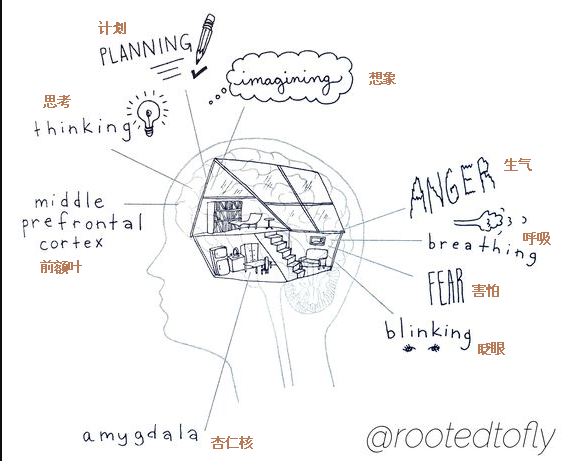 计划
PLANNING
imagining
想象
思考
thinking
middle
prefrontal
cortex
前额叶
ANGER
生气
breathing
呼吸
FEAR
害怕
blinking
眨眼
amygdala
杏仁核
@rootedtofly